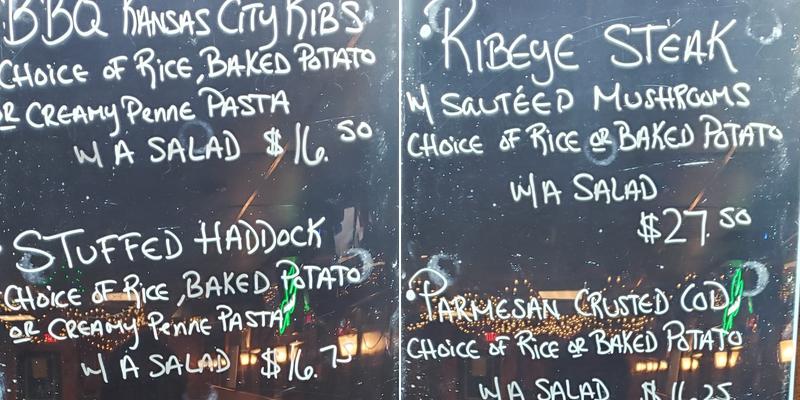 BBQ KANSAS CITY RIBS
CHOICE OF RICE, BAKED POTATO
OR CREAMY PENNE PASTA
W/ A SALAD $16.50
STUFFED HADDOCK
CHOICE OF RICE, BAKED POTATO
OR CREAMY PENNE PASTA
W/ A SALAD $16.75
RIBEYE STEAK
W/ SAUTÉED MUSHROOMS
CHOICE OF RICE OR BAKED POTATO
W/ A SALAD
$27.50
PARMESAN CRUSTED COD
CHOICE OF RICE OR BAKED POTATO
W/ A SALAD $16.25